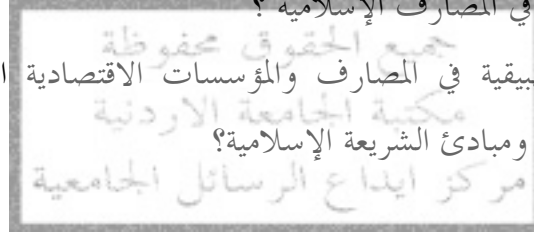 في المصارف الإسلامية ؟
جميع الحقوق محفوظة
بيقية في المصارف والمؤسسات الاقتصادية ا
مكتبة الجامعة الاردنية
ومبادئ الشريعة الإسلامية؟
مركز ايداع الرسائل الجامعية